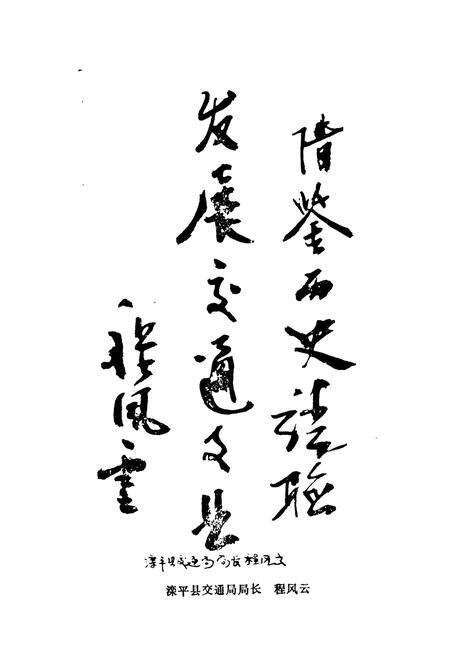 借鉴历史经验
发展交通事业
程风雲
滦平县交通局局长程风云
滦平县交通局局长 程风云